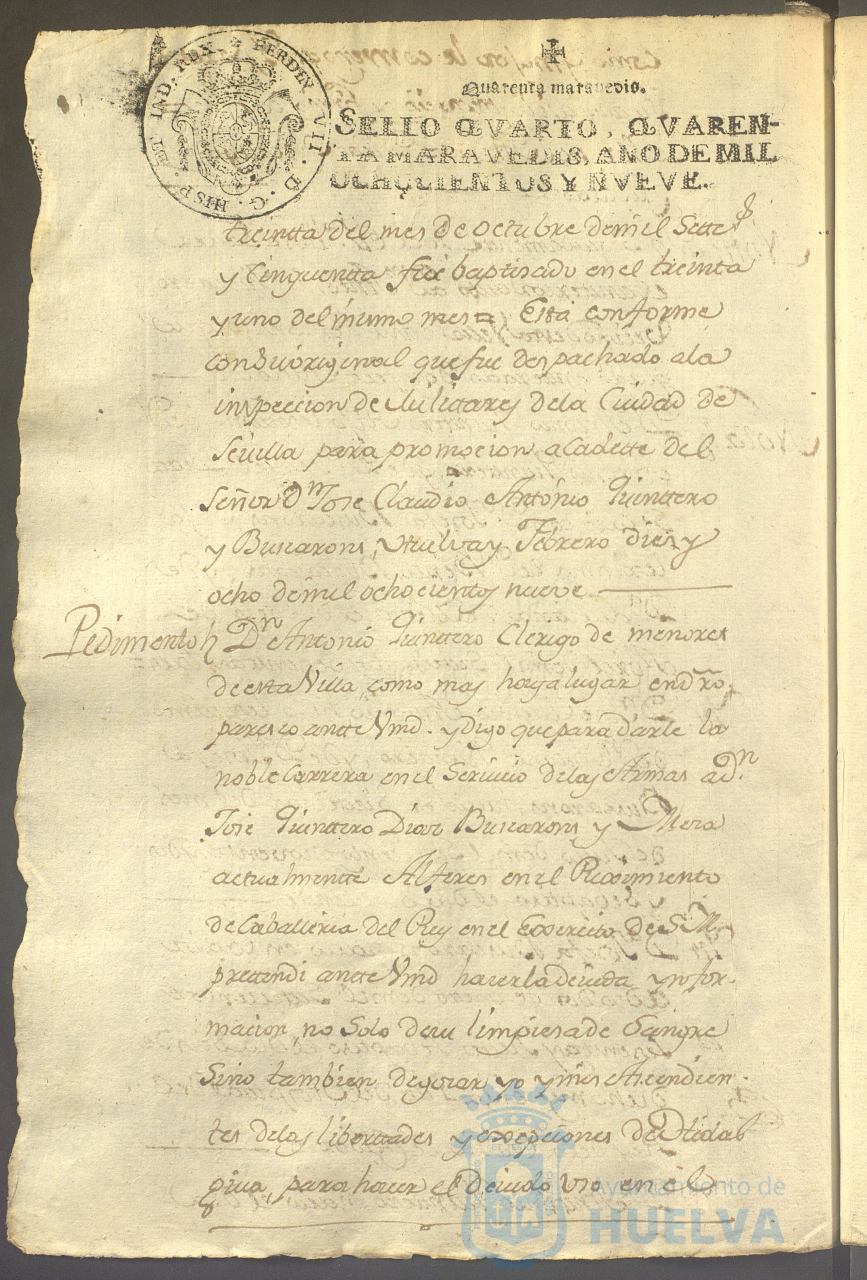 HISP. ET IND. REX. FERDIN. VII. D. G.
Quarenta maravedis.
SELLO QVARTO, QVAREN-
TA MARAVEDIS, AÑO DE MIL
OCHOCIENTOS Y NVEVE.
treintta del mes de octubre demil Sette
y Cinquentta fué baptisado en el treinta
y uno del mismo mes= Esta conforme
con su original que fue despachado ala
inspeccion de Militares dela Ciudad de
Sevilla para promocion a Cadette del
Señor Dn Jose Claudio António Quinttero
y Buscarons, Huelva y Febrero diez y
ocho demil ocho cientos nueve
Pedimento Dn Antonio Quinttero Clerigo de menores
de esta Villa, como mas haya lugar en dro.
paresco antte Vmd. y digo que para darle la
noble Carrera en el Servicio delas Armas a dn.
Jose Quinttero Diaz Buscarons y Mora
actualmentte Alferes en el Reximiento
de Caballeria del Rey en el Exercito de S.M.
prettendi antte Vmd hacer la devida ynfor-
macion, no Solo de su limpiesa de Sangre
Sino tambien de gozar yo y mis Ascendien-
tes delas liberttades y excepciones de Hidal
guia, para hacer el devido uso en el
Ayuntamiento de
HUELVA